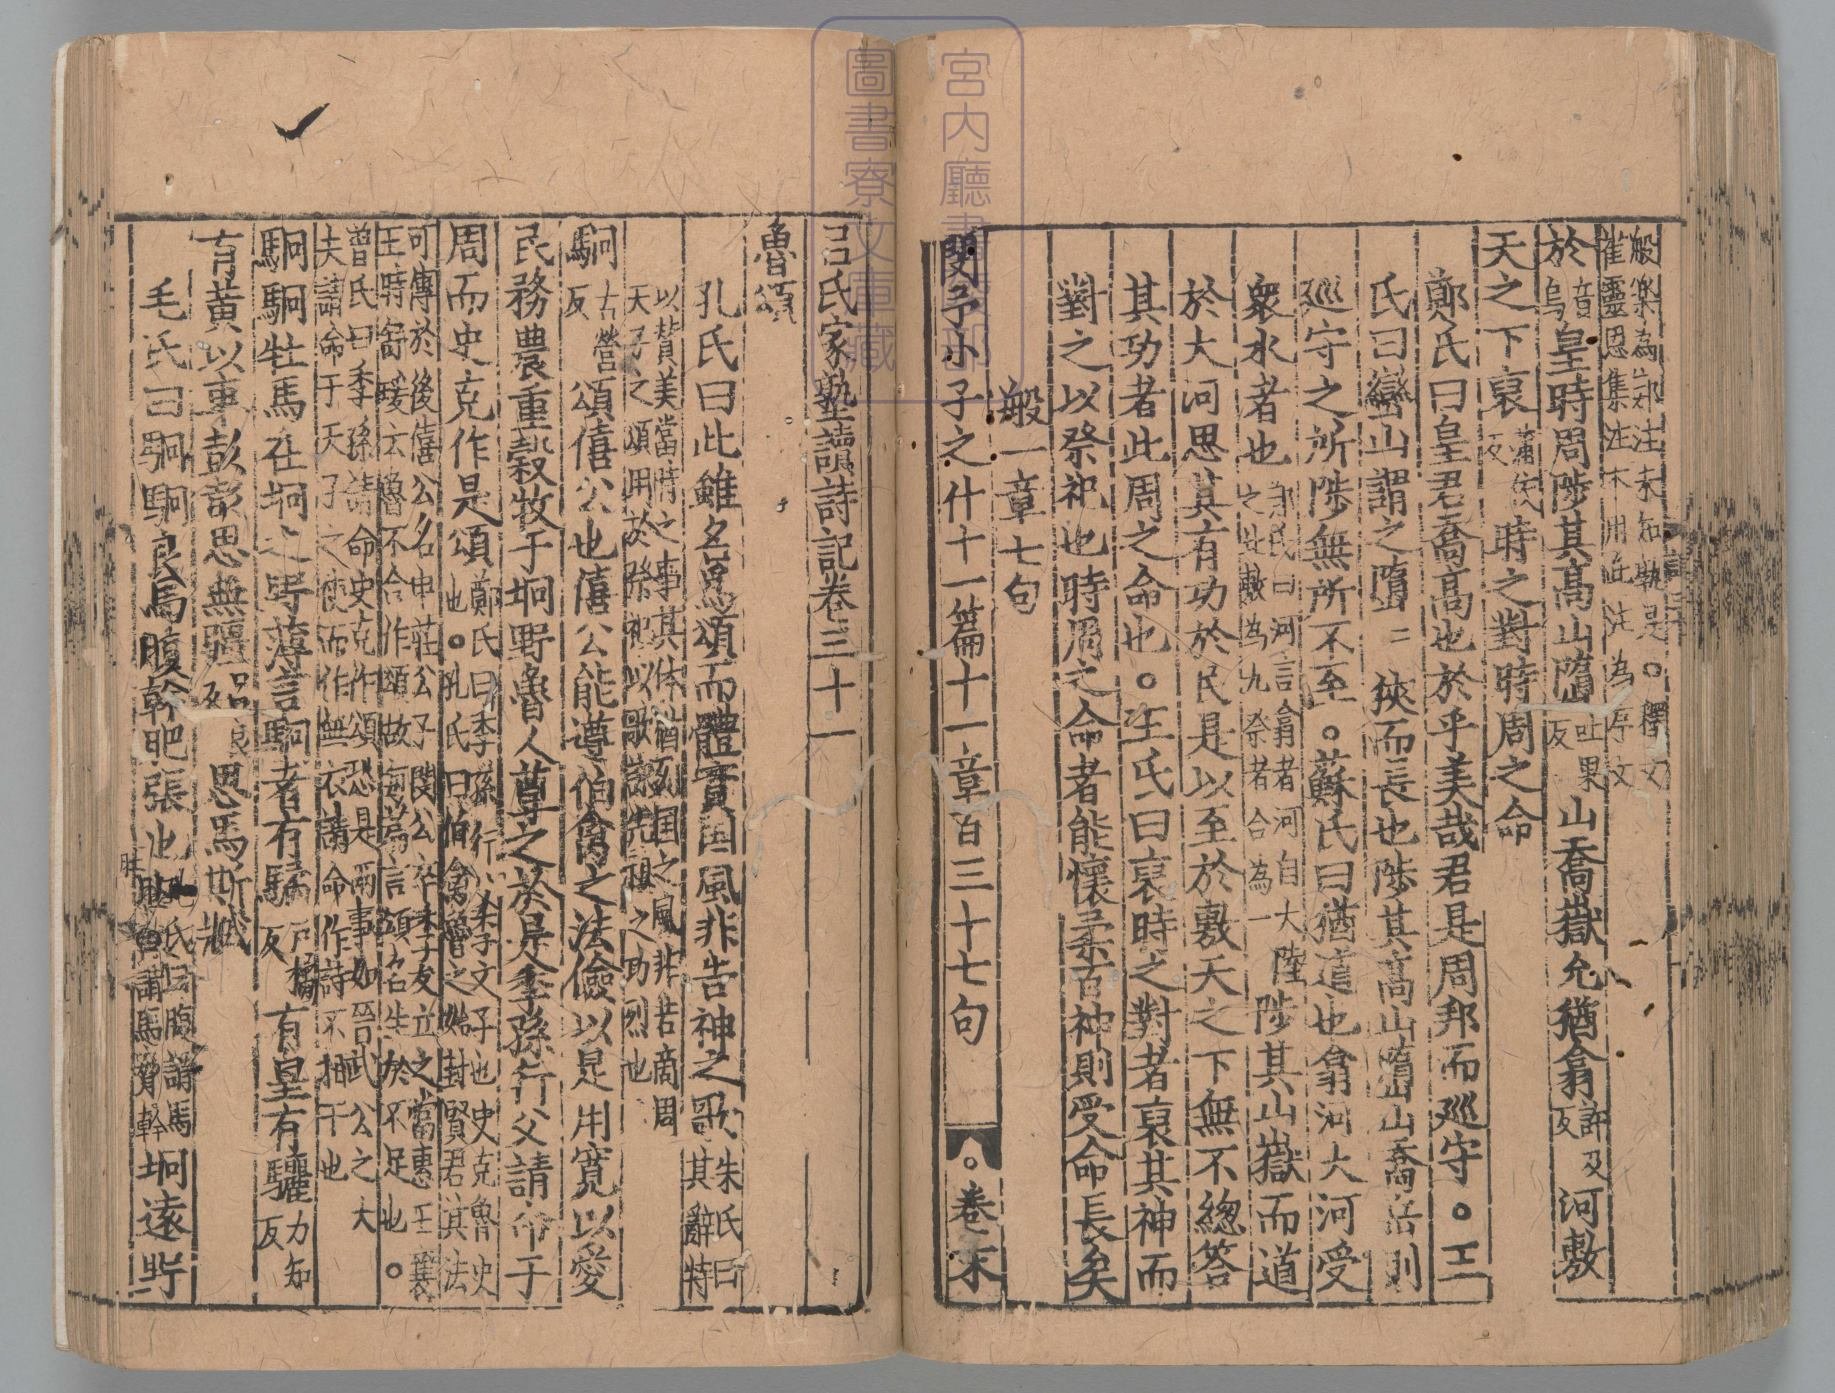 般樂為鄭注未知孰是。釋文
崔靈恩集注本用此注為序文
於音烏皇時周陟其高山隋吐果反山喬嶽允猶翕許及反河敷
天之下裒蒲侯反時之對時周之命
鄭氏曰皇君喬高也於乎美哉君是周邦而巡守。王
氏曰巒山謂之隋隋狹而長也陟其高山隋山喬岳則
巡守之所陟無所不至。蘇氏曰猶道也翕河大河受
衆水者也鄭氏曰河言翕者河自大陸之北敷為九祭者合為一陟其山嶽而道
於大河思其有功於民是以至於敷天之下無不緫答
其功者此周之命也。王氏曰裒時之對者裒其神而
對之以祭祀也時周之命者能懷柔百神則受命長矣
般一章七句
閔予小子之什十一篇十一章百三十七句
。卷末
呂氏家塾讀詩記卷三十一
魯頌
孔氏曰此雖名為頌而體實國風非告神之歌朱氏曰其辭特
以贊美當時之事其体猶列国之風非若商周
天子之頌用於祭祀以歌詠先祖之功烈也
駉古營反頌僖公也僖公能遵伯禽之法儉以足用寬以愛
民務農重穀牧于坰野魯人尊之於是季孫行父請命于
周而史克作是頌鄭氏曰季孫行父季文子也史克魯史也。孔氏曰伯禽魯之始封賢君其法
可傳於後僖公名申莊公子閔公卒季友立之當惠王襄
王時寄暖云魯不合作頌故每篇言頌名生於不足也。
曾氏曰季孫請命史克作頌恐是兩事如晉武公之大
夫請命于天子之使而作無衣請命作詩不相干也
駉駉牡馬在坰之野薄言駉者有驈戶橘反有皇有驪力知反
有黃以車彭彭思無疆思馬斯臧
毛氏曰駉駉良馬腹幹肥張也孔氏曰腹謂馬肚幹謂馬脅坰遠野